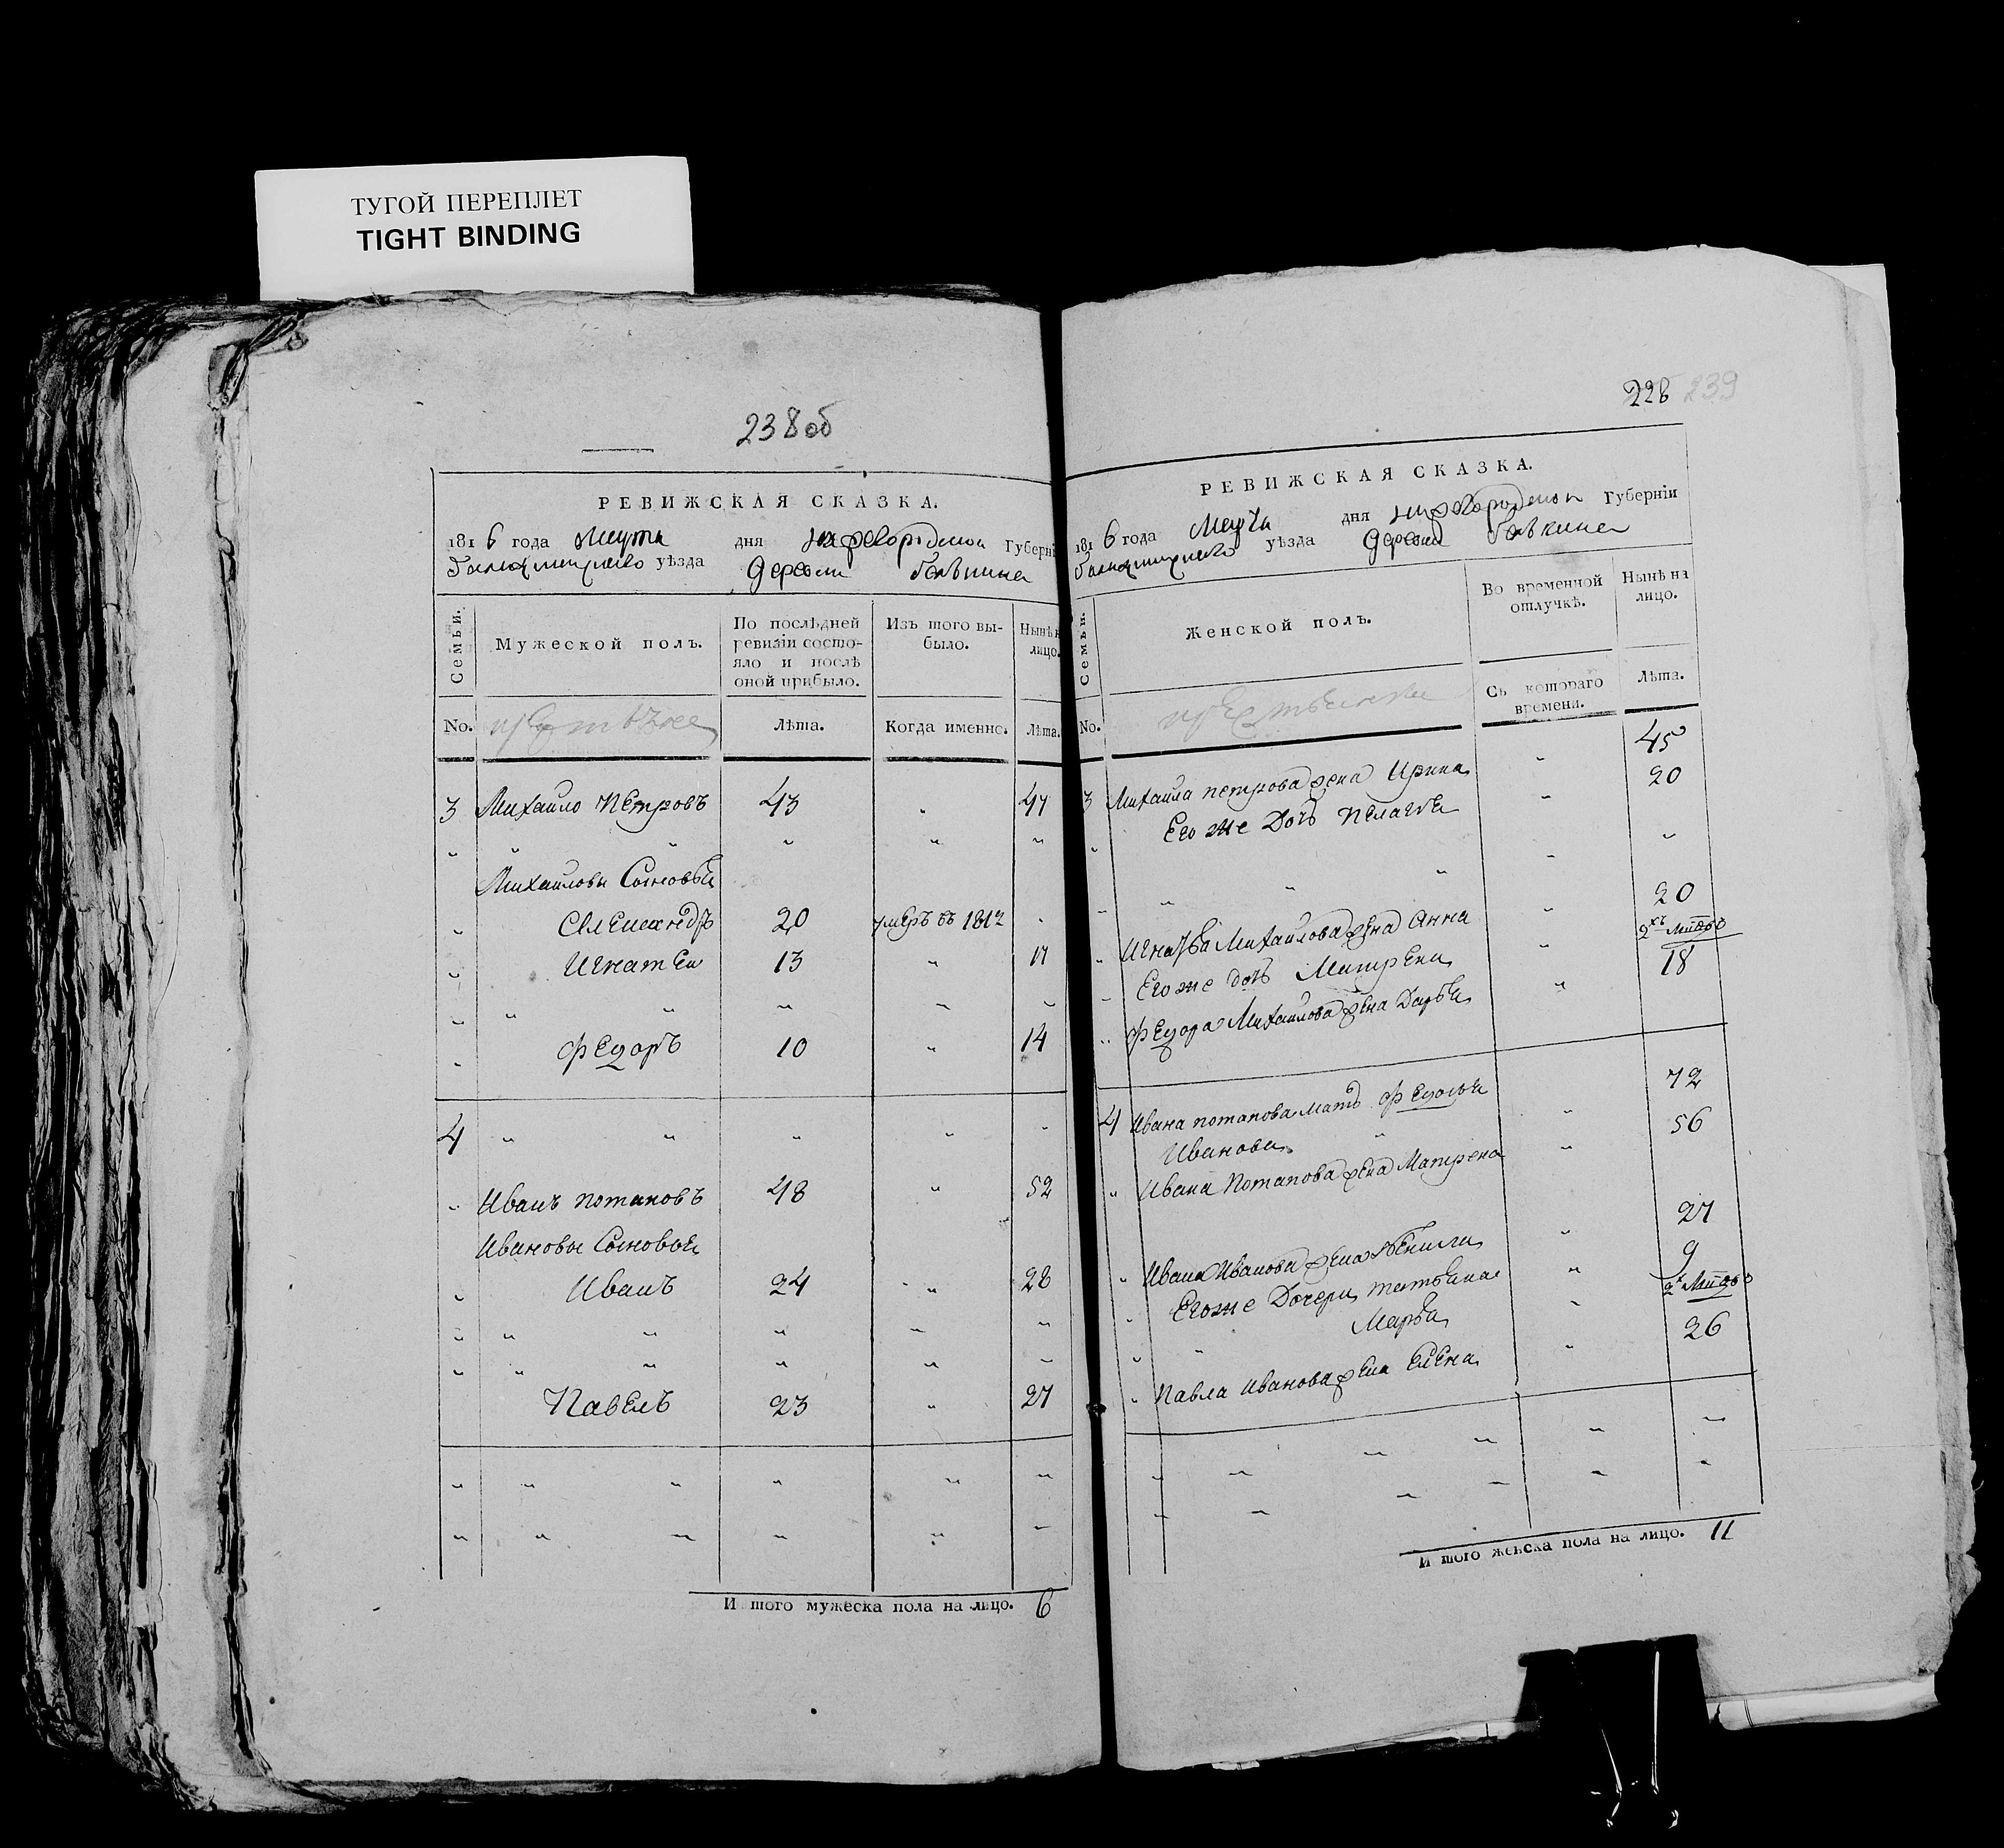 ТУГОЙ ПЕРЕПЛЕТ
TIGHT BINDING
238об
РЕВИЖСКАЯ СКАЗКА.
1816 года Марта дня нижегородской Губерніи
уѣзда Деревни
Семьи.
Мужеской полъ.
По послѣдней ревизіи состояло и послѣ оной прибыло.
Изъ того выбыло.
Нынѣ на лицо.
No.
Лѣта.
Когда именно.
Лѣта.
3 Михайло Петровъ 43 " 47
" " " " " "
Михайловы Сыновья
" Александръ 20 умеръ въ 1812 "
" Игнатеи 13 " 17
" " " " " "
" Федоръ 10 " 14
4 " " " " "
" Иванъ потаповъ 48 " 52
Ивановы Сыновья
" Иванъ 24 " 28
" " " " " "
" " " " " "
Павелъ 23 " 27
" " " " " "
" " " " " "
И того мужеска пола на лицо. 6
228 239
РЕВИЖСКАЯ СКАЗКА.
1816 года Марта дня нижегородской Губерніи
уѣзда Деревни
Семьи.
Женской полъ.
Во временной отлучкѣ.
Нынѣ на лицо.
No.
Съ котораго времени.
Лѣта.
3 Михаила петрова жена Ирина " 45
Его же Дочь Пелагея " 20
" " " " "
" Игнатья Михайлова жена Анна " 20
" Его же дочь Матрена " 2хъ
" Федора Михайлова жена Дарья " 18
4 Ивана потапова мать Федосья 72
Иванова " "
" Ивана Потапова жена Матрена " 56
" Ивана Иванова жена " 27
" Его же Дочери татьяна " 9
" " Марья " 2х
" Павла Иванова жена Елена " 26
" " " " " "
" " " " " "
И того женска пола на лицо. 11